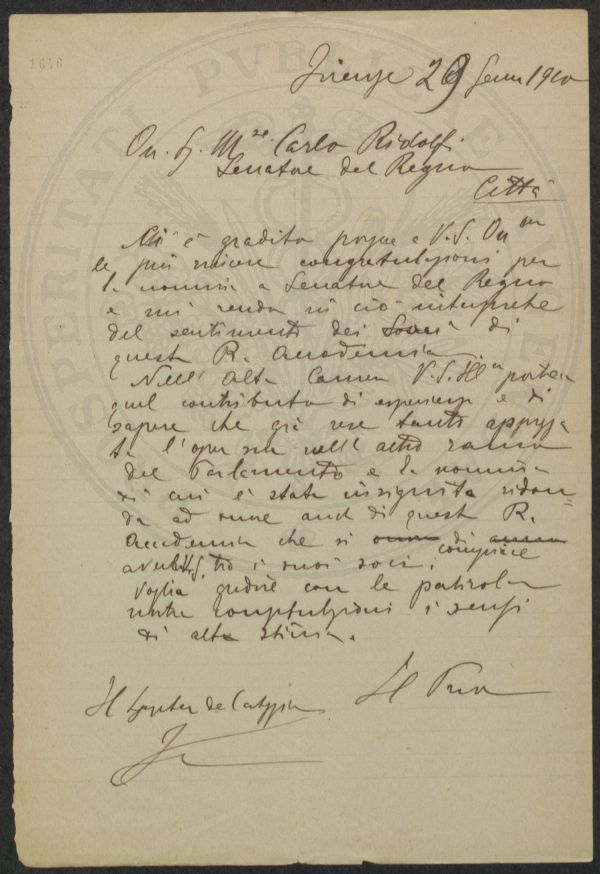 1646
PROSPERITATI PVBLICAE
Firenze 29 Genn 1910
On. Sig. M.se Carlo Ridolfi
Senatore del Regno
Città
Mi è gradito porgere a V.S. On
le più sincere congratulazioni per
la nomina a Senatore del Regno
e mi rendo in ciò interprete
del sentimento dei Soci di
questa R. Accademia.
Nell' Alta Camera V.S. Ill porterà
quel contributo di esperienza e di
sapere che già rese tanto apprezza
ta l'opera sua nell' altro ramo
del Parlamento e la nomina
di cui è stata insignita ridon=
da ad onore anche di questa R.
Accademia che si di
compiace
aver tra i suoi soci.
Voglia gradire con le
nostre congratulazioni i sensi
di alta stima.
Il Pres
Il de